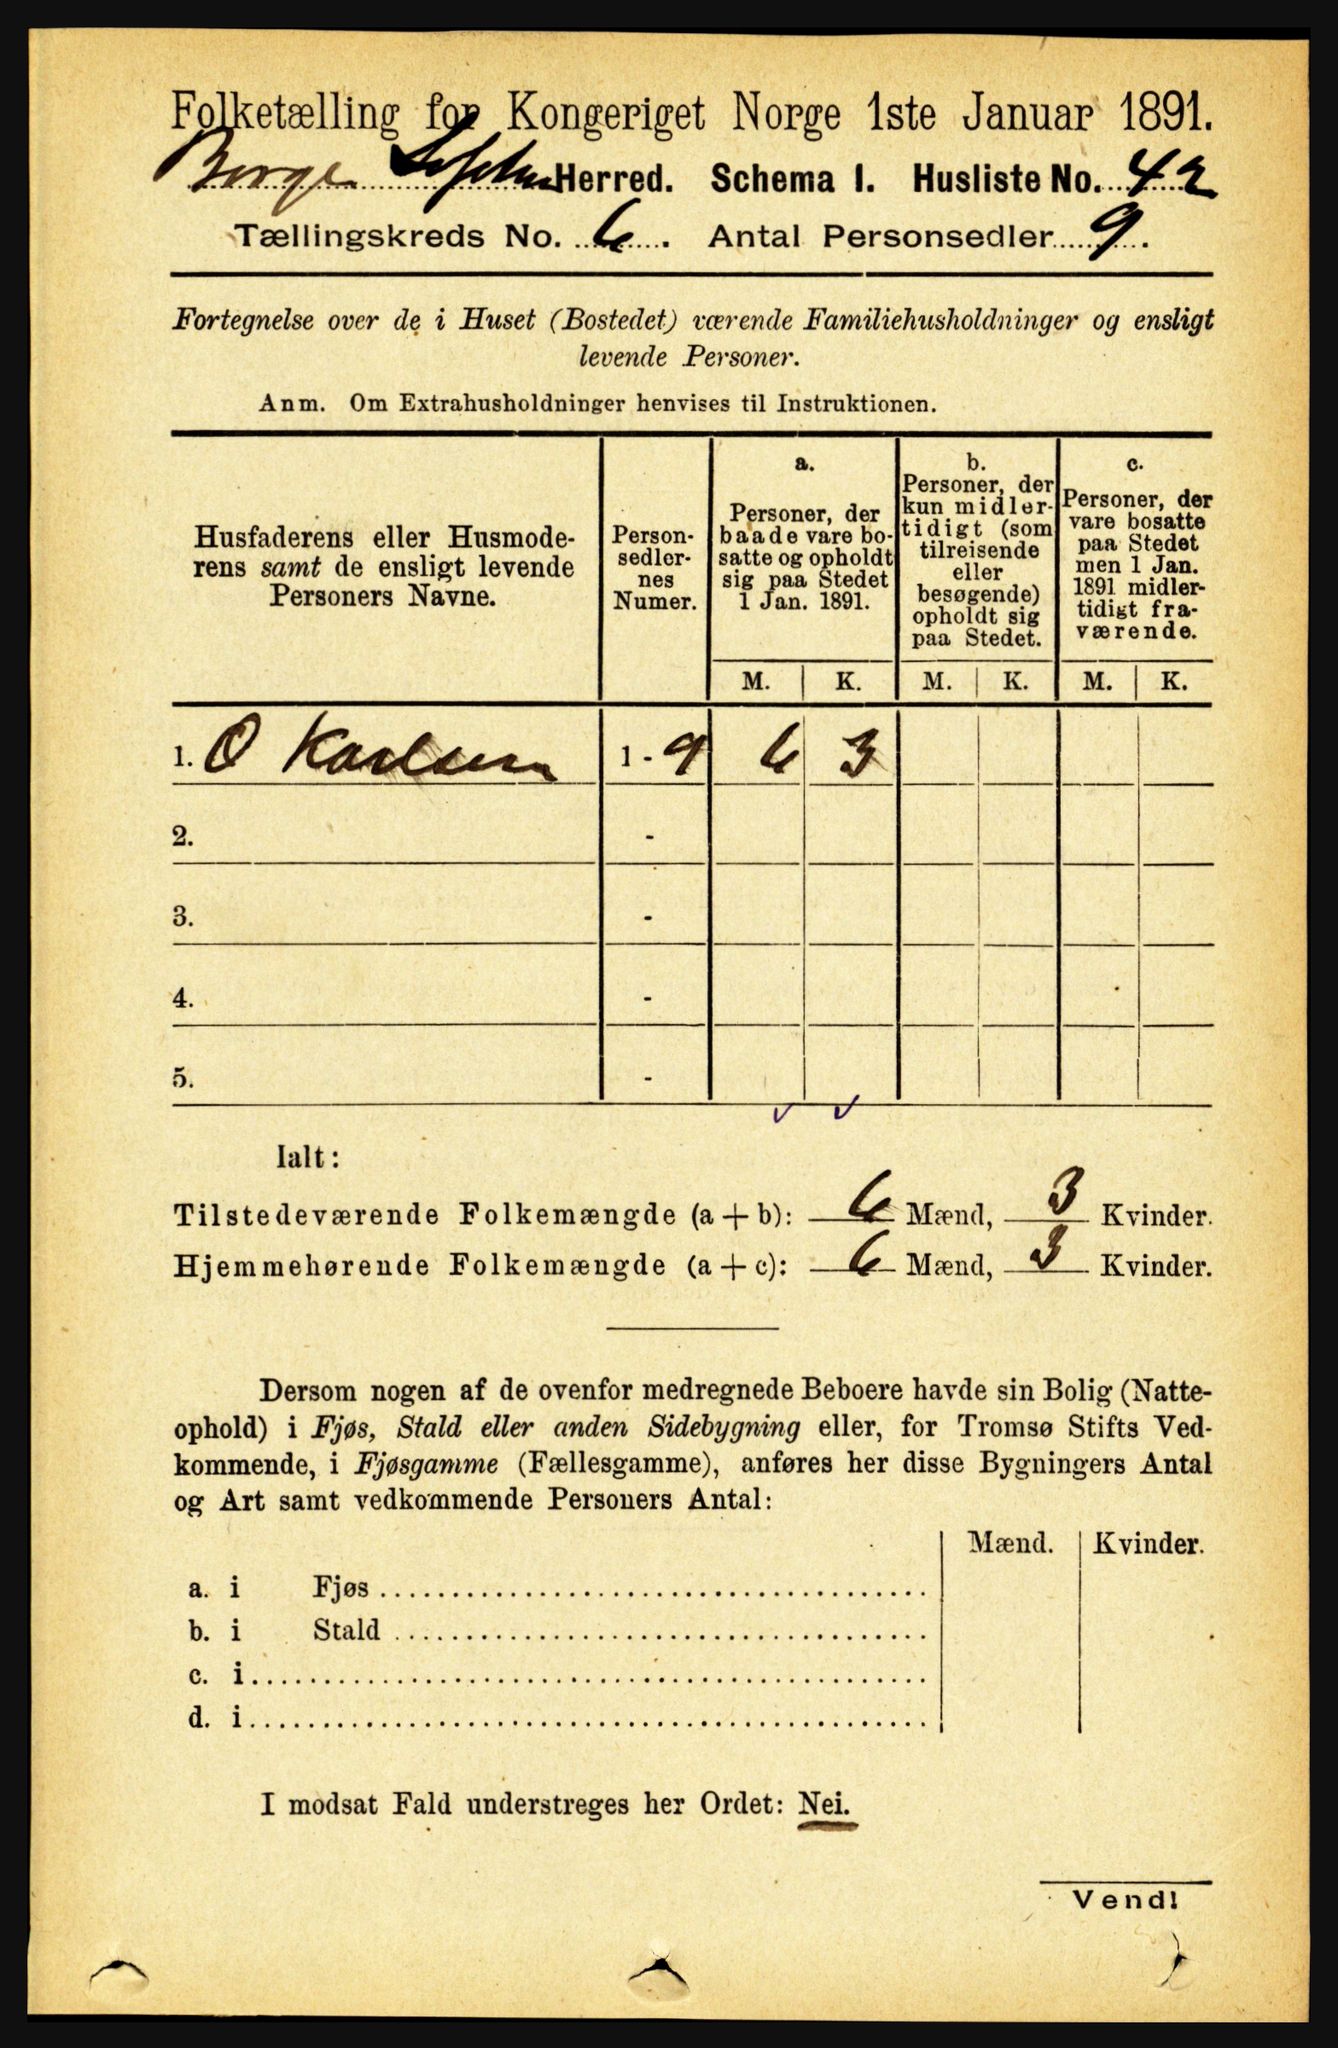 Folketælling for Kongeriget Norge 1ste Januar 1891.
Borge Lofoten Herred. Schema I. Husliste No. 42
Tællingskreds No. 6. Antal Personsedler 9.
Fortegnelse over de i Huset (Bostedet) værende Familiehusholdninger og ensligt
levende Personer.
Anm. Om Extrahusholdninger henvises til Instruktionen.
Husfaderens eller Husmode-
rens samt de ensligt levende
Personers Navne.
Person-
sedler-
nes
Numer.
a.
Personer, der
baade vare bo-
satte og opholdt
sig paa Stedet
1 Jan. 1891.
b.
Personer, der
kun midler-
tidigt (som
tilreisende
eller
besøgende)
opholdt sig
paa Stedet.
c.
Personer, der
vare bosatte
paa Stedet
men 1 Jan.
1891 midler-
tidigt fra-
værende.
M. K. M. K. M. K.
1. O Karlsen 1 - 9 6 3
2. -
3. -
4. -
5. -
Ialt:
Tilstedeværende Folkemængde (a + b): 6 Mænd, 3 Kvinder.
Hjemmehørende Folkemængde (a + c): 6 Mænd, 3 Kvinder.
Dersom nogen af de ovenfor medregnede Beboere havde sin Bolig (Natte-
ophold) i Fjøs, Stald eller anden Sidebygning eller, for Tromsø Stifts Ved-
kommende, i Fjøsgamme (Fællesgamme), anføres her disse Bygningers Antal
og Art samt vedkommende Personers Antal:
Mænd. Kvinder.
a. i Fjøs
b. i Stald
c. i
d. i
I modsat Fald understreges her Ordet: Nei.
Vend!